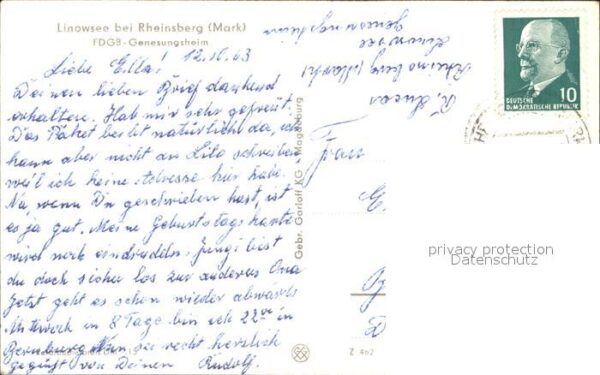 Linowsee bei Rheinsberg (Mark)
FDGB-Genesungsheim
Liebe Ella! 12.10.63
Deinen lieben Brief dankend
erhalten. Hab mir sehr gefreut.
Das Paket bes natürlich da, ich
kann aber nicht an Lilo schreiben
weil ich keine Adresse hier habe.
Na, wenn Du geschrieben hast, ist
es ja gut. Meine Geburtstagskarte
wird noch eintrudeln. Jungi
du doch sicher los zur anderen Oma
Jetzt geht es schon wieder abwärts
Mittwoch in 8 Tage bin ich 22 00 in
Bernburg. Nun sei recht herzlich
gegrüßt von Deinen Rudolf.
R. Lucas
Rheinsberg (Mark)
Linowsee
Genesungsheim
Gebr. Garloff KG · Magdeburg
DEUTSCHE
DEMOKRATISCHE REPUBLIK
10
Frau
E
D
privacy protection
Datenschutz
Z 462